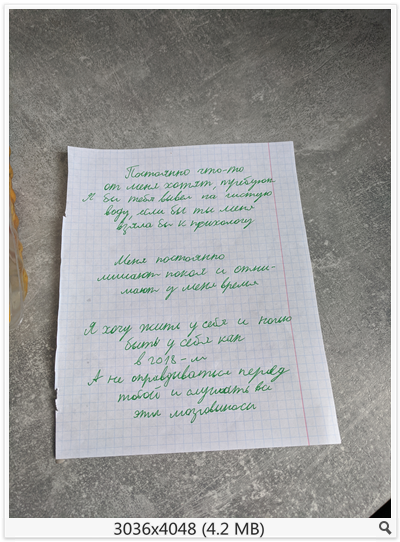 Постоянно что-то
от меня хотят, требуют
Я бы тебя вывел на чистую
воду, если бы ты меня
взяла бы к психологу
Меня постоянно
лишают покоя и отни-
мают у меня время
Я хочу жить у себя и ночью
быть у себя как
в 2018-м
А не оправдываться перед
тобой и слушать все
эти мозговыносы
3036x4048 (4.2 MB)